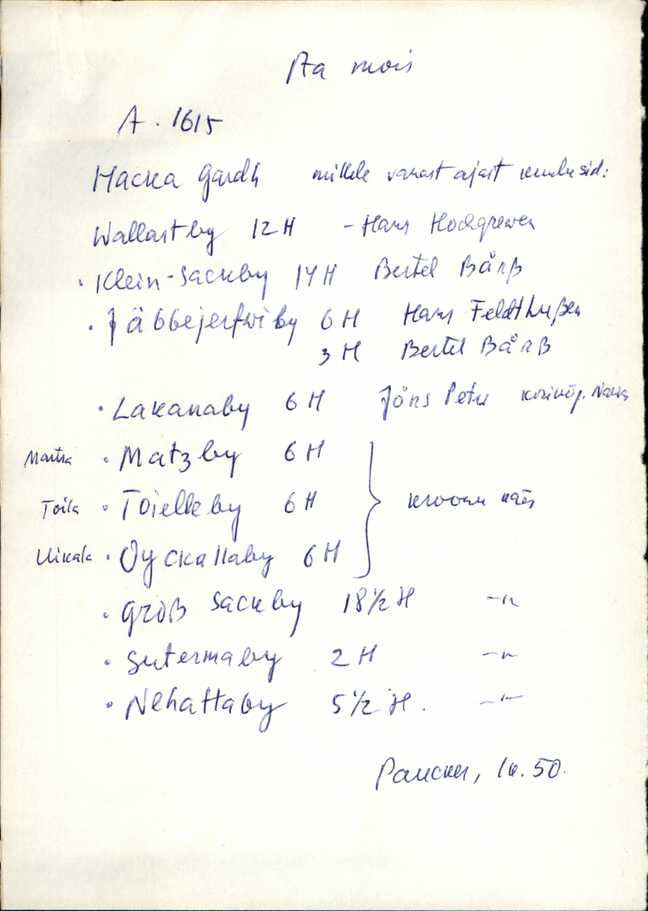 Aa mois
A. 1615
Hacka gardh millele vanast ajast kuulusid:
Wallastby 12 H - Hans Hochgrewen
· Klein-Sackby 14 H Bertel Bårß
· Jäbbejerfwiby 6 H Hans Feldthußen
3 H Bertel Bårß
· Lakanaby 6 H Jöns Petri
Martsa · Matzby 6 H
Toila · Toielleby 6 H krooni käes
Uikala · Oyckallaby 6 H
· Groß Sackby 18 1/2 H -"-
· Sutermaby 2 H -"-
· Nehattaby 5 1/2 H. -"-
Paucker, lk. 50.